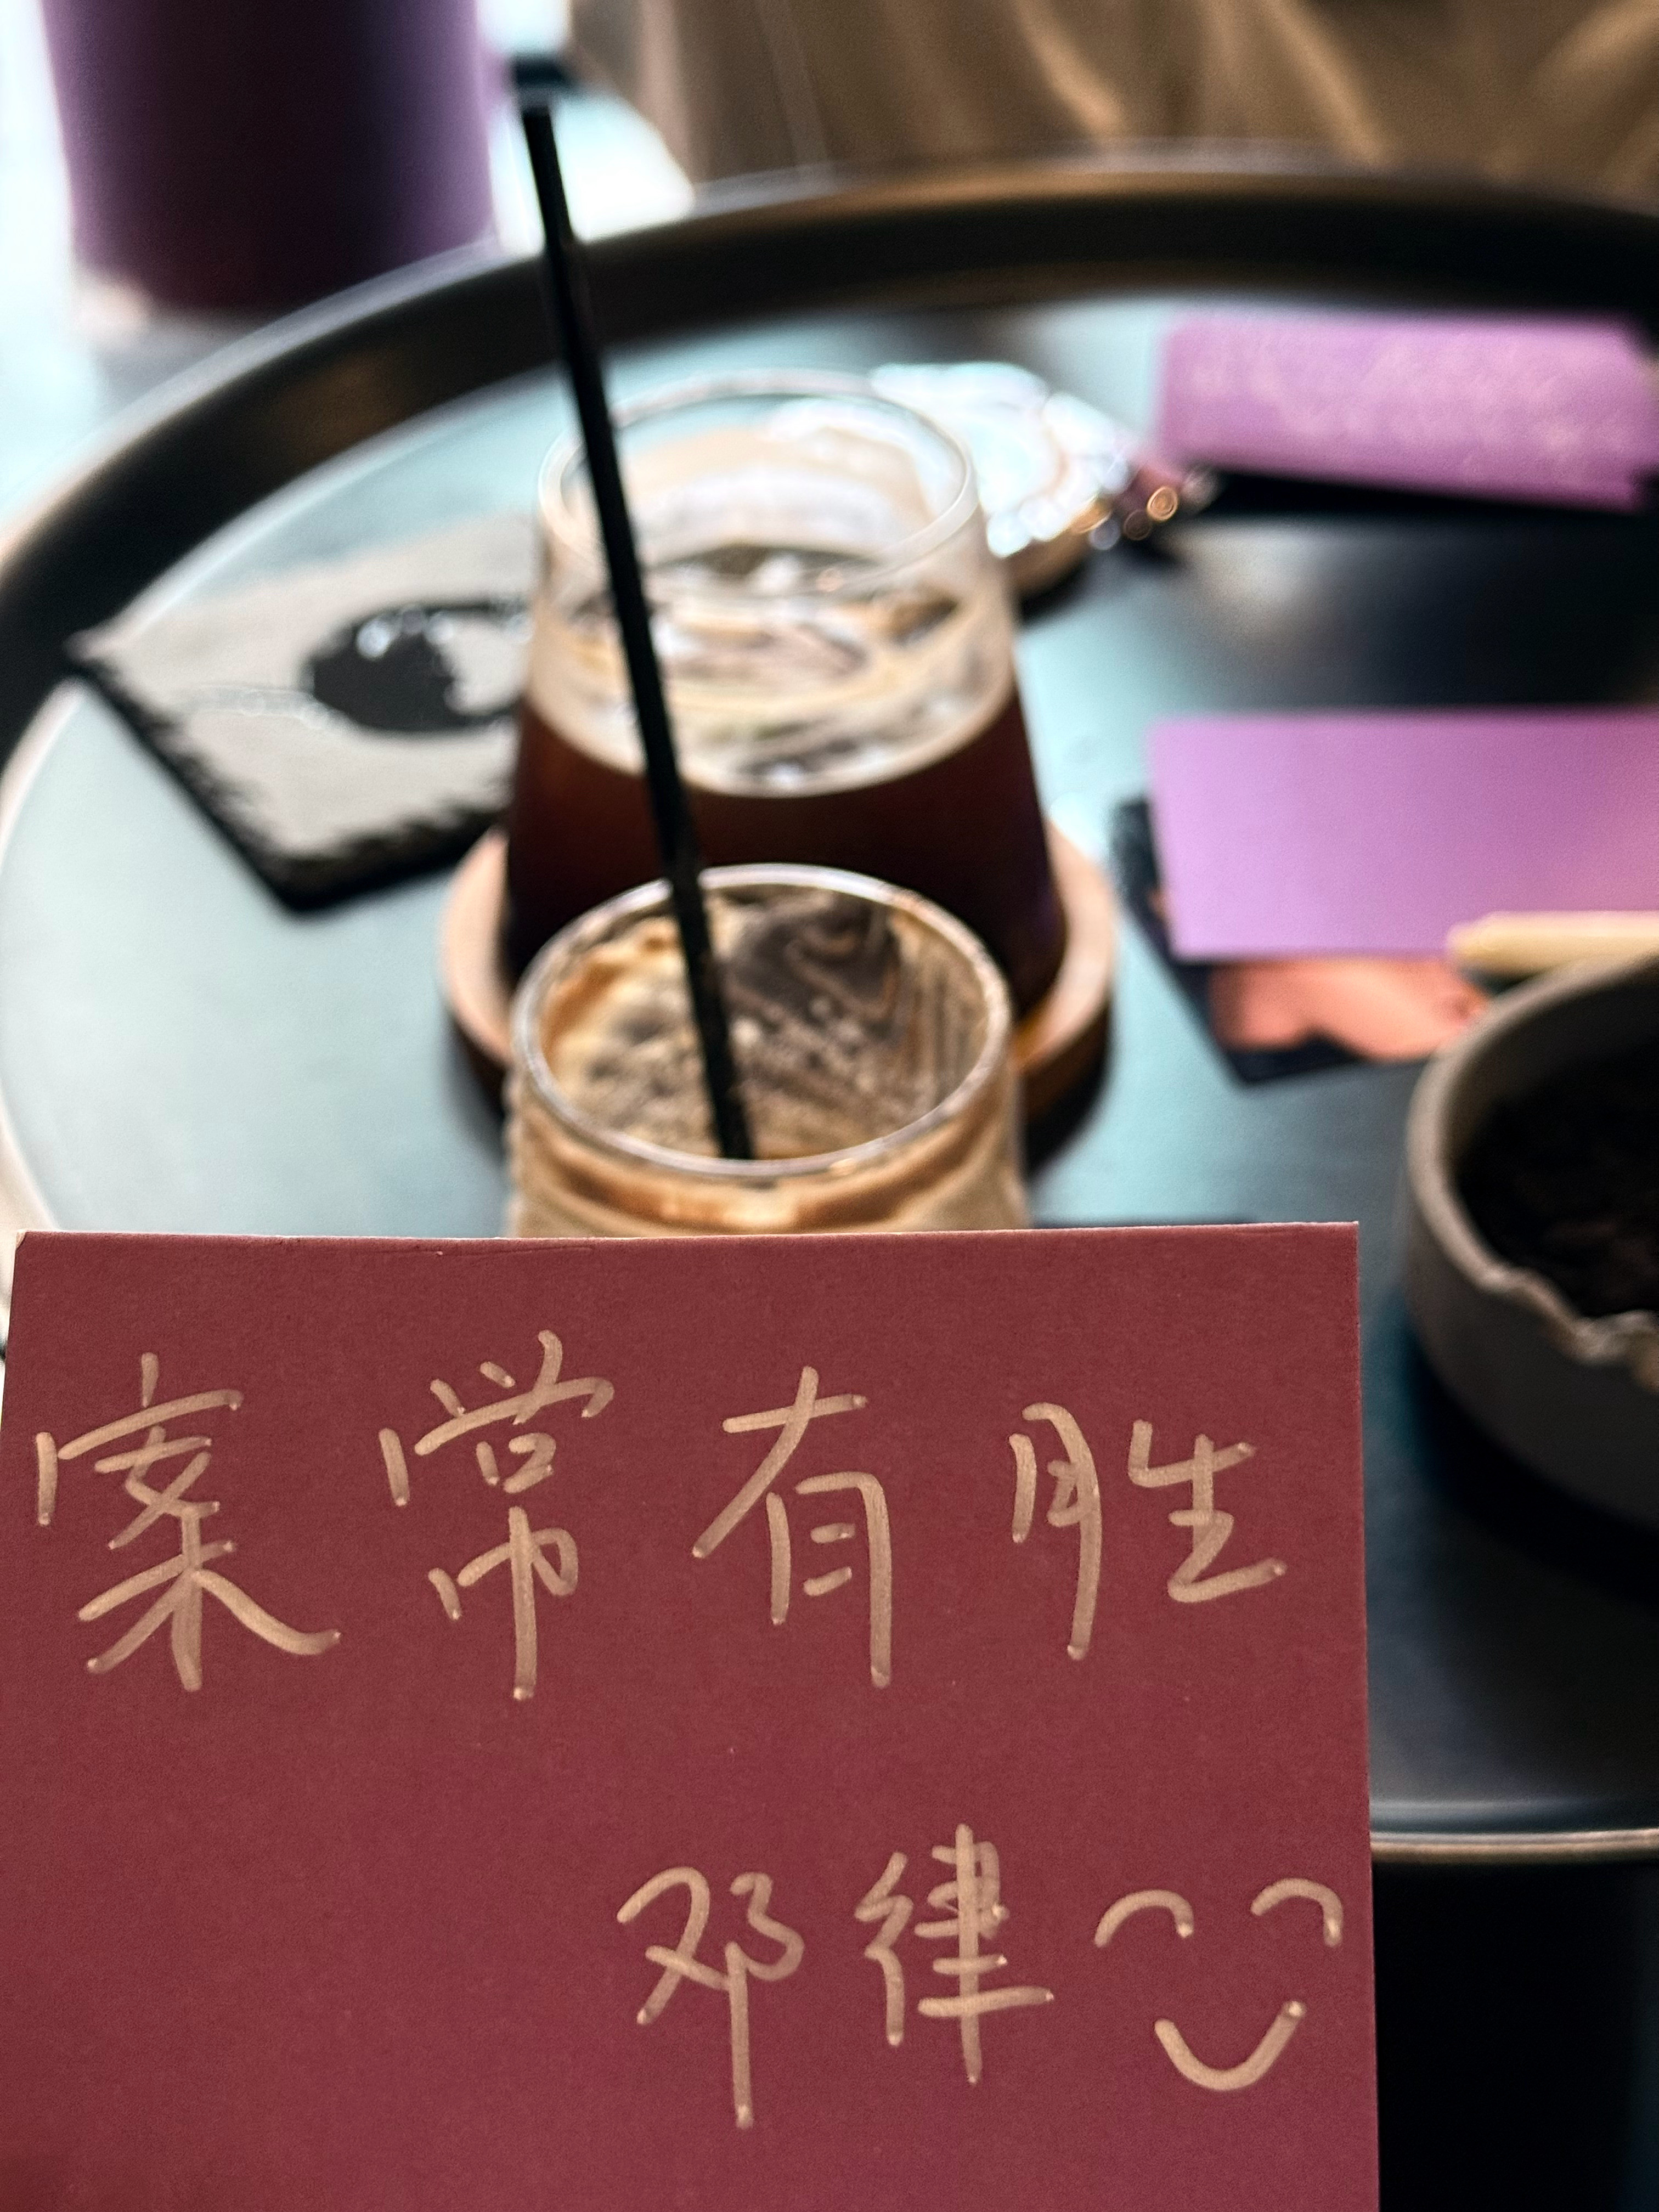 案常有胜
邓律